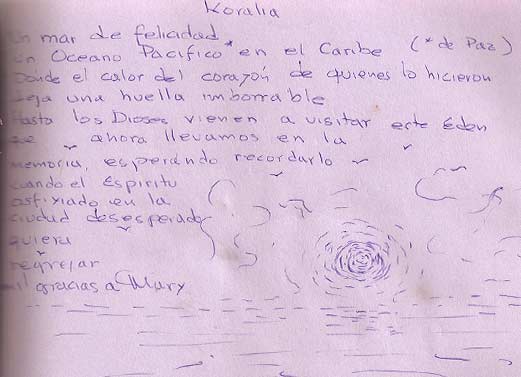 Koralia
Un mar de felicidad
Un Oceano Pacifico * en el Caribe (* de Paz)
Donde el calor del corazón de quienes lo hicieron
deja una huella imborrable
Hasta los Dioses vienen a visitar este Eden
que ahora llevamos en la
memoria, esperando recordarlo
cuando el Espiritu
asfixiado en la
ciudad desesperada
quiera
regresar
Mil gracias a Mary